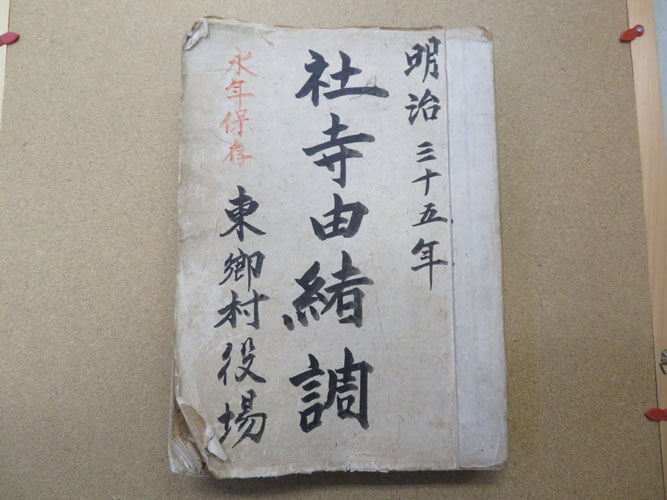 明治三十五年
社寺由緒調
永年保存
東鄉村役場